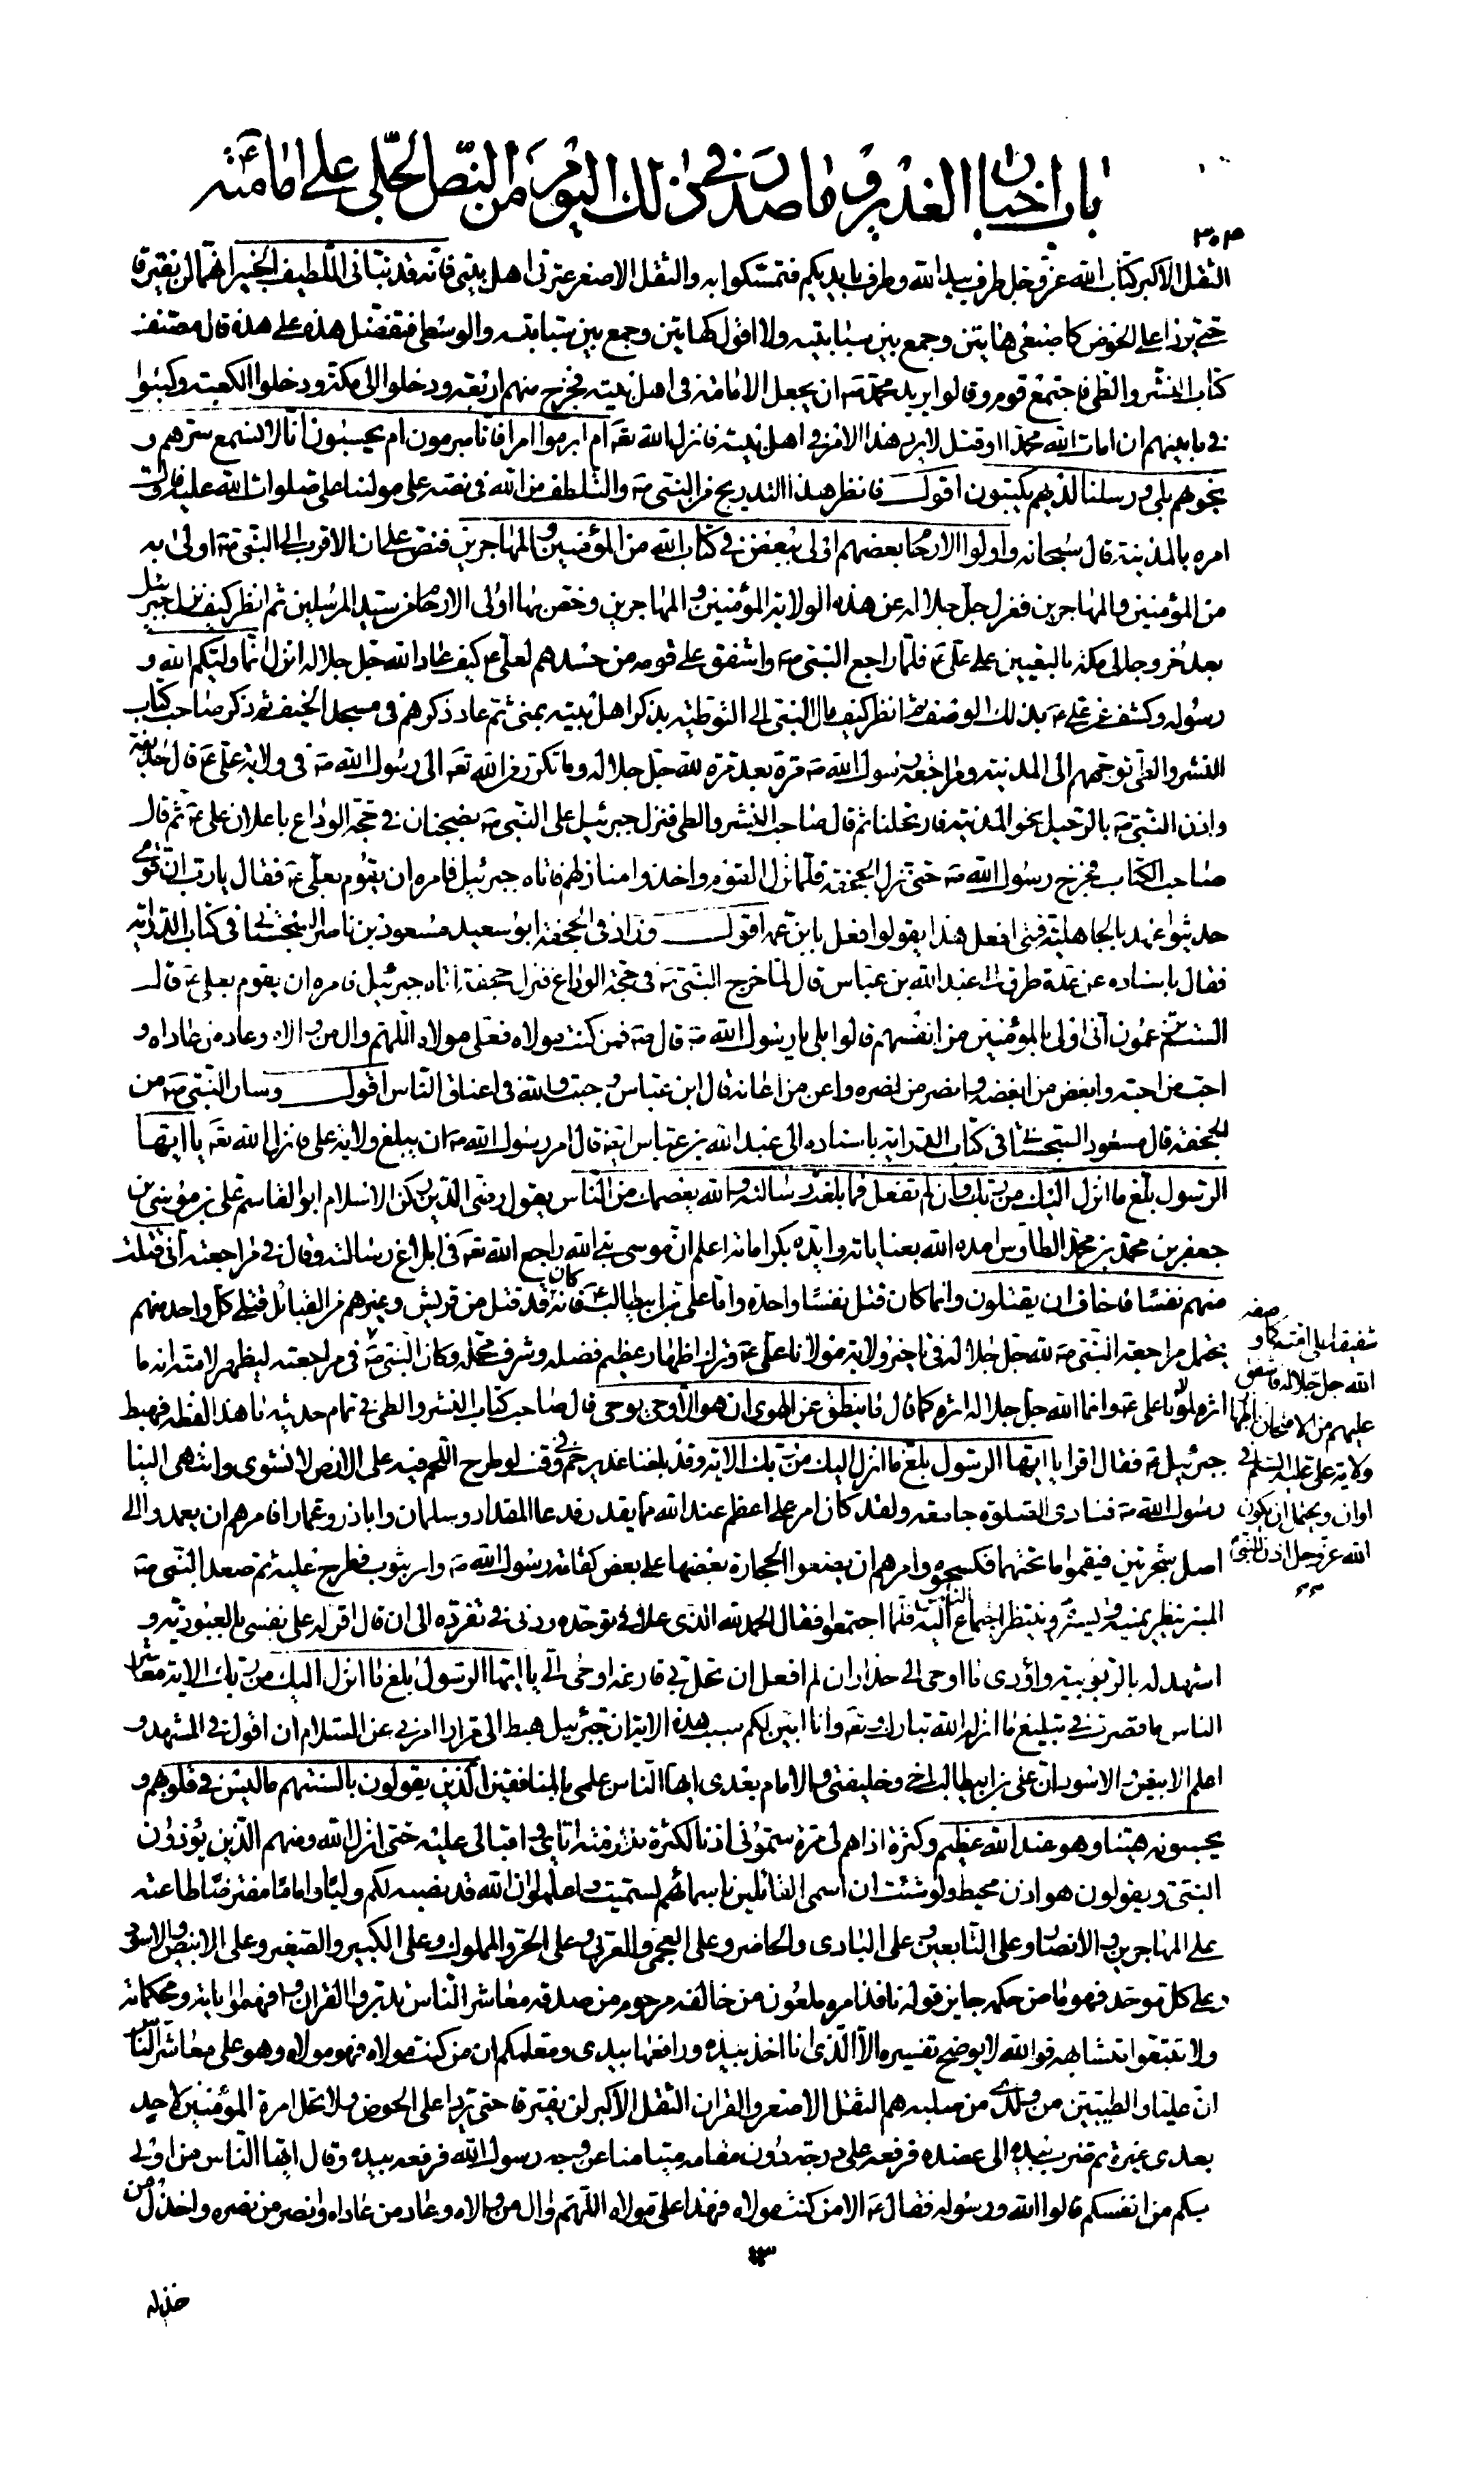 باب اخبار الغدير وما صدر في ذلك اليوم من النص الجلي على امامته
٣٠٤
الثقل الاكبر كتاب الله عز وجل طرف بيد الله وطرف بايديكم فتمسكوا به والثقل الاصغر عترتي اهل بيتي فانه قد نباني اللطيف الخبير انهما لن يفترقا
حتى يردا على الحوض كاصبعي هاتين وجمع بين سبابتيه ولا اقول كهاتين وجمع بين سبابته والوسطى فتفضل هذه على هذه قال مصنف
كتاب النشر والطي فاجتمع قوم وقالوا يريد محمد ص ان يجعل الامامة في اهل بيته فخرج منهم اربعة ودخلوا الى مكة ودخلوا الكعبة وكتبوا
فيما بينهم ان امات الله محمدا او قتل لا يرد هذا الامر في اهل بيته فانزل الله تعه ام ابرموا امرا فانا مبرمون ام يحسبون انا لا نسمع سرهم و
نجوهم بلى ورسلنا لديهم يكتبون اقول فانظر هذا التدريج من النبي ص والتلطف من الله في نصه على مولنا على صلوات الله عليه فاول
امره بالمدينة قال سبحانه واولوا الارحام بعضهم اولى ببعض في كتاب الله من المؤمنين والمهاجرين فنص على ان الاقرب الى النبي ص اولى به
من المؤمنين والمهاجرين فعزل جل جلاله عن هذه الولاية المؤمنين والمهاجرين وخص بها اولى الارحام من سيد المرسلين ثم انظر كيف نزل جبرئيل
بعد خروجه الى مكة بالتعيين على علي ع فلما راجع النبي ص واشفق على قومه من حسدهم لعلي ع كيف عاد الله جل جلاله انزل انما وليكم الله و
رسوله وكشف عن علي ع بذلك الوصف ثم انظر كيف مال النبي الى التوطئة بذكر اهل بيته بمنى ثم عاد ذكرهم في مسجد الخيف ثم ذكر صاحب كتاب
النشر والطي توجههم الى المدينة ومراجعة رسول الله ص مرة بعد مرة لله جل جلاله وما تكرر من الله تعه الى رسول الله ص في ولاية علي ع قال حذيفة
واذن النبي ص بالرحيل نحو المدينة فارتحلنا ثم قال صاحب النشر والطي فنزل جبرئيل على النبي ص بضجنان في حجة الوداع باعلان علي ع ثم قال
صاحب الكتاب فخرج رسول الله ص حتى نزل الجحفة فلما نزل القوم واخذوا منازلهم فاتاه جبرئيل فامره ان يقوم بعلي ع فقال يا رب ان قومي
حديثوا عهد بالجاهلية فمتى افعل هذا يقولوا فعل بابن عمه اقول وزاد في الجحفة ابو سعيد مسعود بن ناصر السجستاني في كتاب الدراية
فقال باسناده عن عدة طرق الى عبد الله بن عباس قال لما خرج النبي ص في حجة الوداع فنزل جحفة اتاه جبرئيل فامره ان يقوم بعلي ع قال
الستم تزعمون اني اولى بالمؤمنين من انفسهم قالوا بلى يا رسول الله ص قال ص فمن كنت مولاه فعلي مولاه اللهم وال من والاه وعاد من عاداه و
احب من احبه وابغض من ابغضه وانصر من نصره واعن من اعانه قال ابن عباس وجبت والله في اعناق الناس اقول وسار النبي ص من
الجحفة قال مسعود السجستاني في كتاب الدراية باسناده الى عبد الله بن عباس ايضا قال امر رسول الله ص ان يبلغ ولاية علي فانزل الله تعه يا ايها
الرسول بلغ ما انزل اليك من ربك وان لم تفعل فما بلغت رسالته والله يعصمك من الناس يقول رضي الدين ركن الاسلام ابو القاسم علي بن موسى بن
جعفر بن محمد بن محمد الطاوس امده الله بعناياته وايده بكراماته اعلم ان موسى نبي الله راجع الله تعه في ابلاغ رسالته وقال في مراجعته اني قتلت
منهم نفسا فاخاف ان يقتلون وانما كان قتل نفسا واحدة واما علي بن ابيطالب ع فانه كان قد قتل من قريش وغيرهم من القبائل قتلى كل واحد منهم
يحتمل مراجعة النبي ص لله جل جلاله في تاخير ولاية مولانا علي ع وترك اظهار عظيم فضله وشرف محله وكان النبي ص في مراجعته ليظهر لامته انه ما
اثره لمولانا علي ع وانما الله جل جلاله اثره كما قال ما ينطق عن الهوى ان هو الا وحي يوحى قال صاحب كتاب النشر والطي في تمام حديثه ما هذا لفظه فهبط
جبرئيل ع فقال اقرا يا ايها الرسول بلغ ما انزل اليك من ربك الاية وقد بلغنا غدير خم في وقت لو طرح اللحم فيه على الارض لانشوى وانتهى الينا
رسول الله ص فنادى الصلوة جامعة ولقد كان امر علي اعظم عند الله مما يقدر فدعا المقداد وسلمان واباذر وعمارا فامرهم ان يعمدوا الى
اصل شجرتين فيقموا ما تحتهما فكسحوه وامرهم ان يضعوا الحجارة بعضها على بعض كقامة رسول الله ص وامر بثوب فطرح عليه ثم صعد النبي ص
المنبر ينظر يمنة ويسرة وينتظر اجتماع الناس اليه فلما اجتمعوا فقال الحمد لله الذي علا في توحده ودنى في تفرده الى ان قال اقر له على نفسي بالعبودية و
اشهد له بالربوبية واؤدى ما اوحى الى حذارا ان لم افعل ان تحل بي قارعة اوحى الى يا ايها الرسول بلغ ما انزل اليك من ربك الاية معاشر
الناس ما قصرت في تبليغ ما انزله الله تبارك وتعه وانا ابين لكم سبب هذه الاية ان جبرئيل هبط الى مرارا امرني عن السلام ان اقول في المشهد و
اعلم الابيض والاسود ان علي بن ابيطالب اخي وخليفتي والامام بعدي ايها الناس علمي بالمنافقين الذين يقولون بالسنتهم ما ليس في قلوبهم و
يحسبونه هينا وهو عند الله عظيم وكثرة اذاهم لي مرة سموني اذنا لكثرة ملازمته اياي واقبالي عليه حتى انزل الله ومنهم الذين يؤذون
النبي ويقولون هو اذن محيط ولو شئت ان اسمي القائلين باسمائهم لسميت واعلموا ان الله قد نصبه لكم وليا واماما مفترضا طاعته
على المهاجرين والانصار وعلى التابعين وعلى البادي والحاضر وعلى العجمي والعربي وعلى الحر والمملوك وعلى الكبير والصغير وعلى الابيض والاسود
وعلى كل موحد فهو ماض حكمه جايز قوله نافذ امره ملعون من خالفه مرحوم من صدقه معاشر الناس تدبروا القران وافهموا اياته ومحكماته
ولا تتبعوا متشابهه فوالله لا يوضح تفسيره الا الذي انا اخذ بيده ورافعها بيدي ومعلمكم ان من كنت مولاه فهو مولاه وهو علي معاشر الناس
ان عليا والطيبين من ولدي من صلبه هم الثقل الاصغر والقران الثقل الاكبر لن يفترقا حتى يردا على الحوض ولا تحل امرة المؤمنين لاحد
بعدي غيره ثم ضرب بيده الى عضده فرفعه على درجة دون مقامه متيامنا عن وجه رسول الله فرفعه بيده وقال ايها الناس من اولى
بكم من انفسكم قالوا الله ورسوله فقال ع الا من كنت مولاه فهذا علي مولاه اللهم وال من والاه وعاد من عاداه وانصر من نصره واخذل من
خذله
الله جل جلاله فاشفق
عليهم من الامتحان باظهار
ولاية علي عليه السلم في
اوان ويحتمل ان يكون
الله عز وجل اذن للنبي